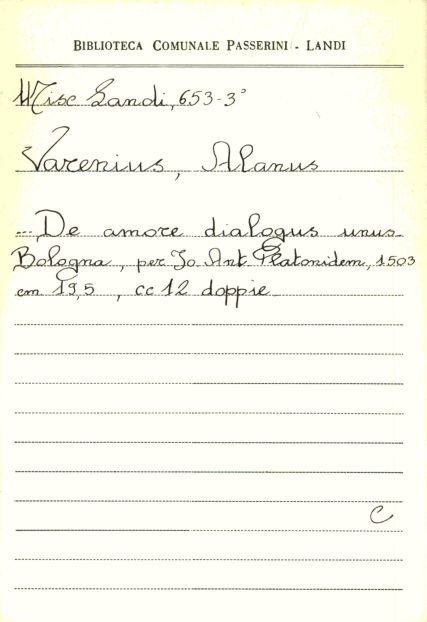 BIBLIOTECA COMUNALE PASSERINI - LANDI
Misc Landi, 653-3°
Varenius, Alanus
De amore dialogus unus
Bologna, per Jo. Ant. Platonidem, 1503
cm 19,5 , cc 12 doppie
C